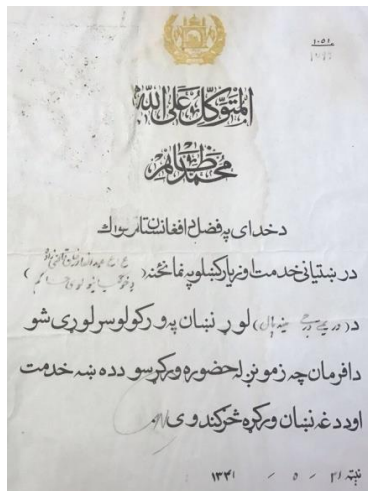 ۱۰۵۱
المتوکل علی الله
محمد ظاهر
د خدای په فضل د افغانستان ټولواک
در ښتیانی خدمت او زیار کښلو په نمانځنه (
د ( دریمې درجې مینه پال ) لوړ نښان په ورکولو سرلوړی شو
دا فرمان چه زمونږ له حضوره ورکړ سو د ده ښه خدمت
او د دغه نښان ورکړه څرګندوی.
نېټه ۲۱ - ۵ - ۱۳۴۱